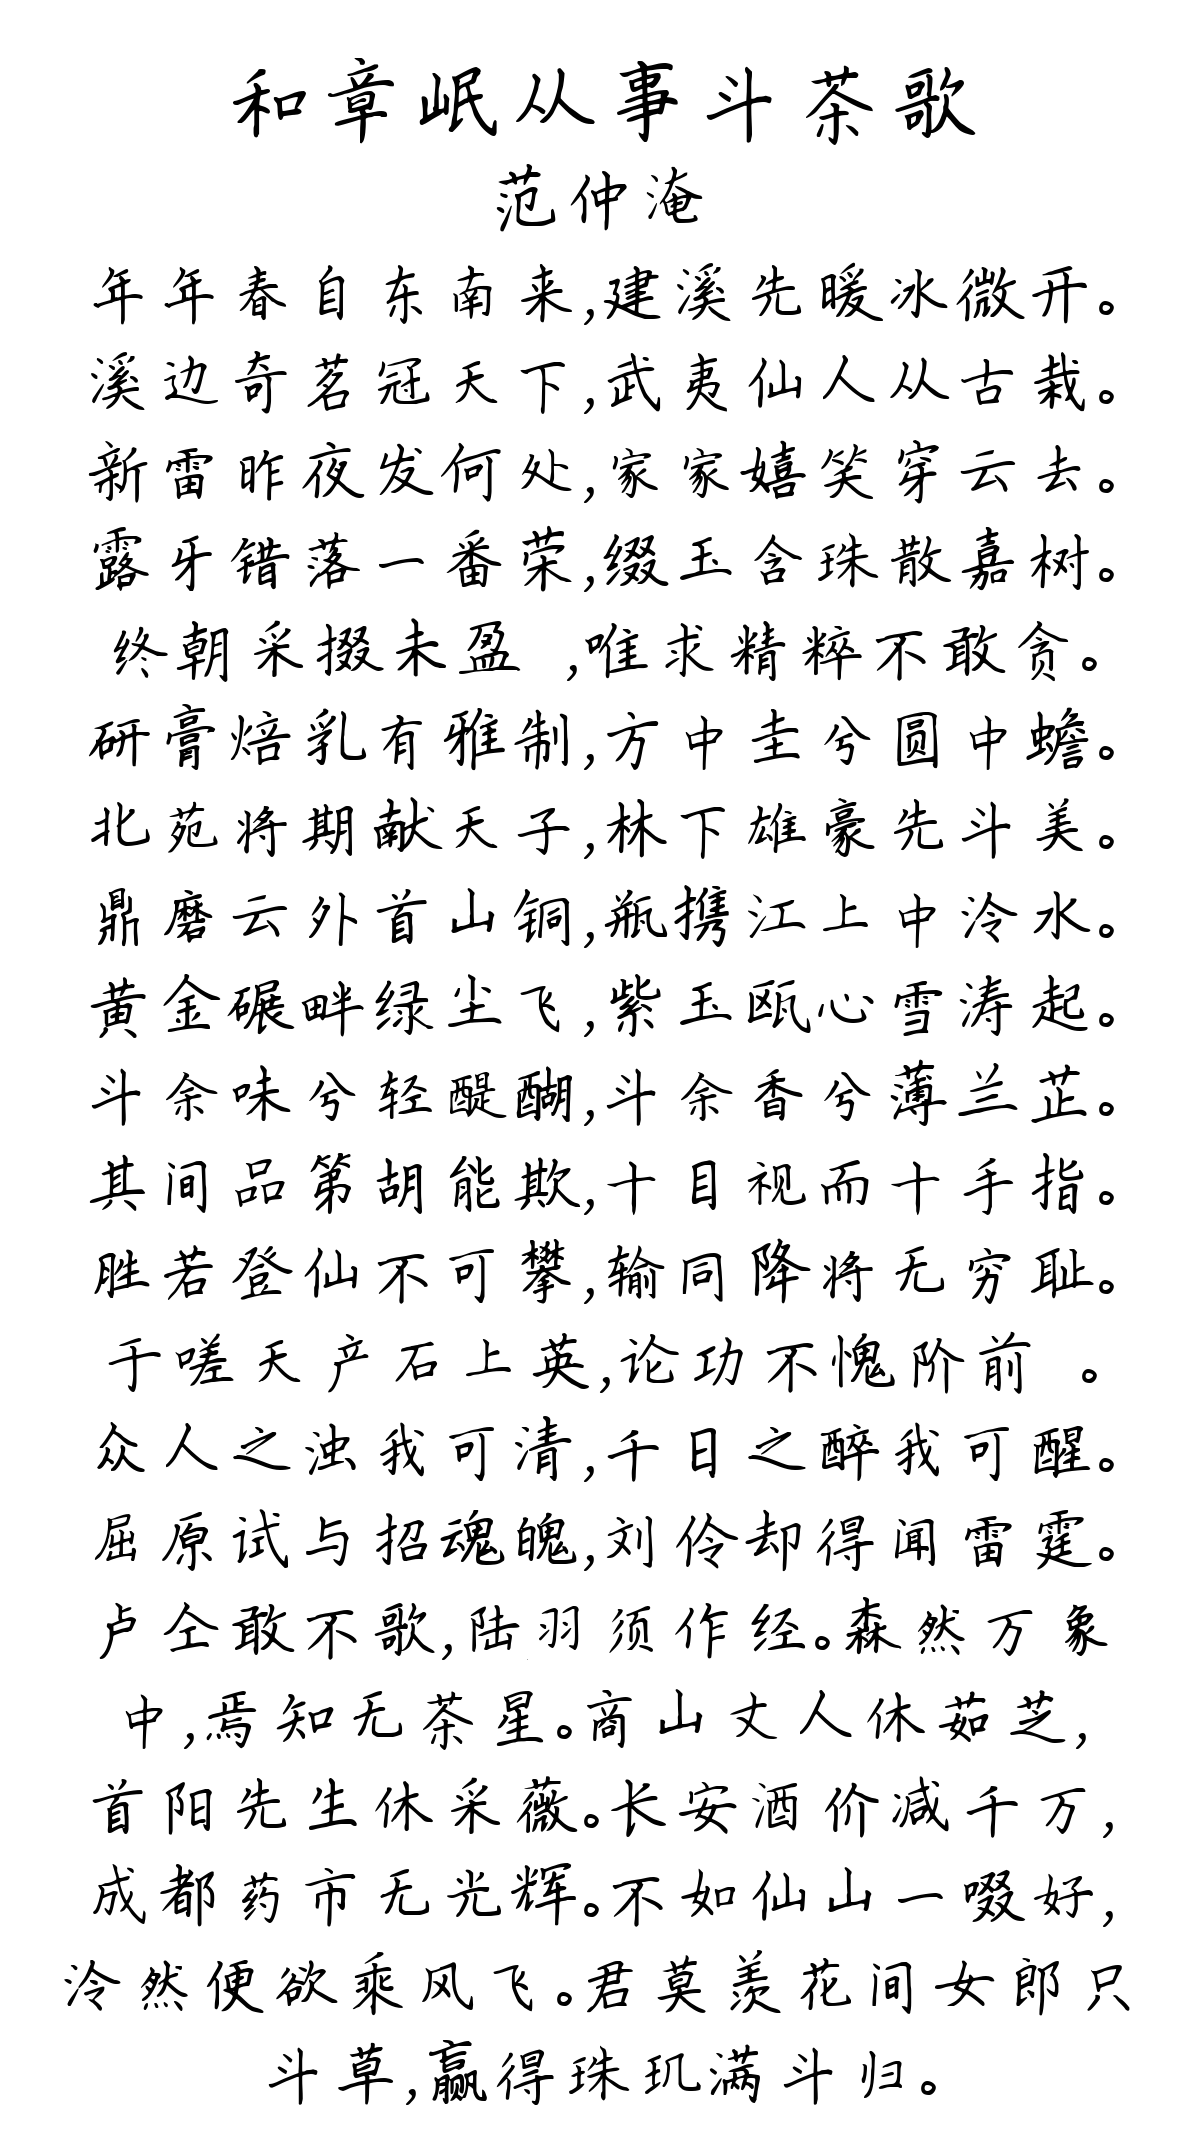 和章岷从事斗茶歌
范仲淹
年年春自东南来,建溪先暖冰微开。
溪边奇茗冠天下,武夷仙人从古栽。
新雷昨夜发何处,家家嬉笑穿云去。
露牙错落一番荣,缀玉含珠散嘉树。
终朝采掇未盈 ,唯求精粹不敢贪。
研膏焙乳有雅制,方中圭兮圆中蟾。
北苑将期献天子,林下雄豪先斗美。
鼎磨云外首山铜,瓶携江上中泠水。
黄金碾畔绿尘飞,紫玉瓯心雪涛起。
斗余味兮轻醍醐,斗余香兮薄兰芷。
其间品第胡能欺,十目视而十手指。
胜若登仙不可攀,输同降将无穷耻。
于嗟天产石上英,论功不愧阶前 。
众人之浊我可清,千日之醉我可醒。
屈原试与招魂魄,刘伶却得闻雷霆。
卢仝敢不歌,陆羽须作经。森然万象
中,焉知无茶星。商山丈人休茹芝,
首阳先生休采薇。长安酒价减千万,
成都药市无光辉。不如仙山一啜好,
泠然便欲乘风飞。君莫羡花间女郎只
斗草,赢得珠玑满斗归。